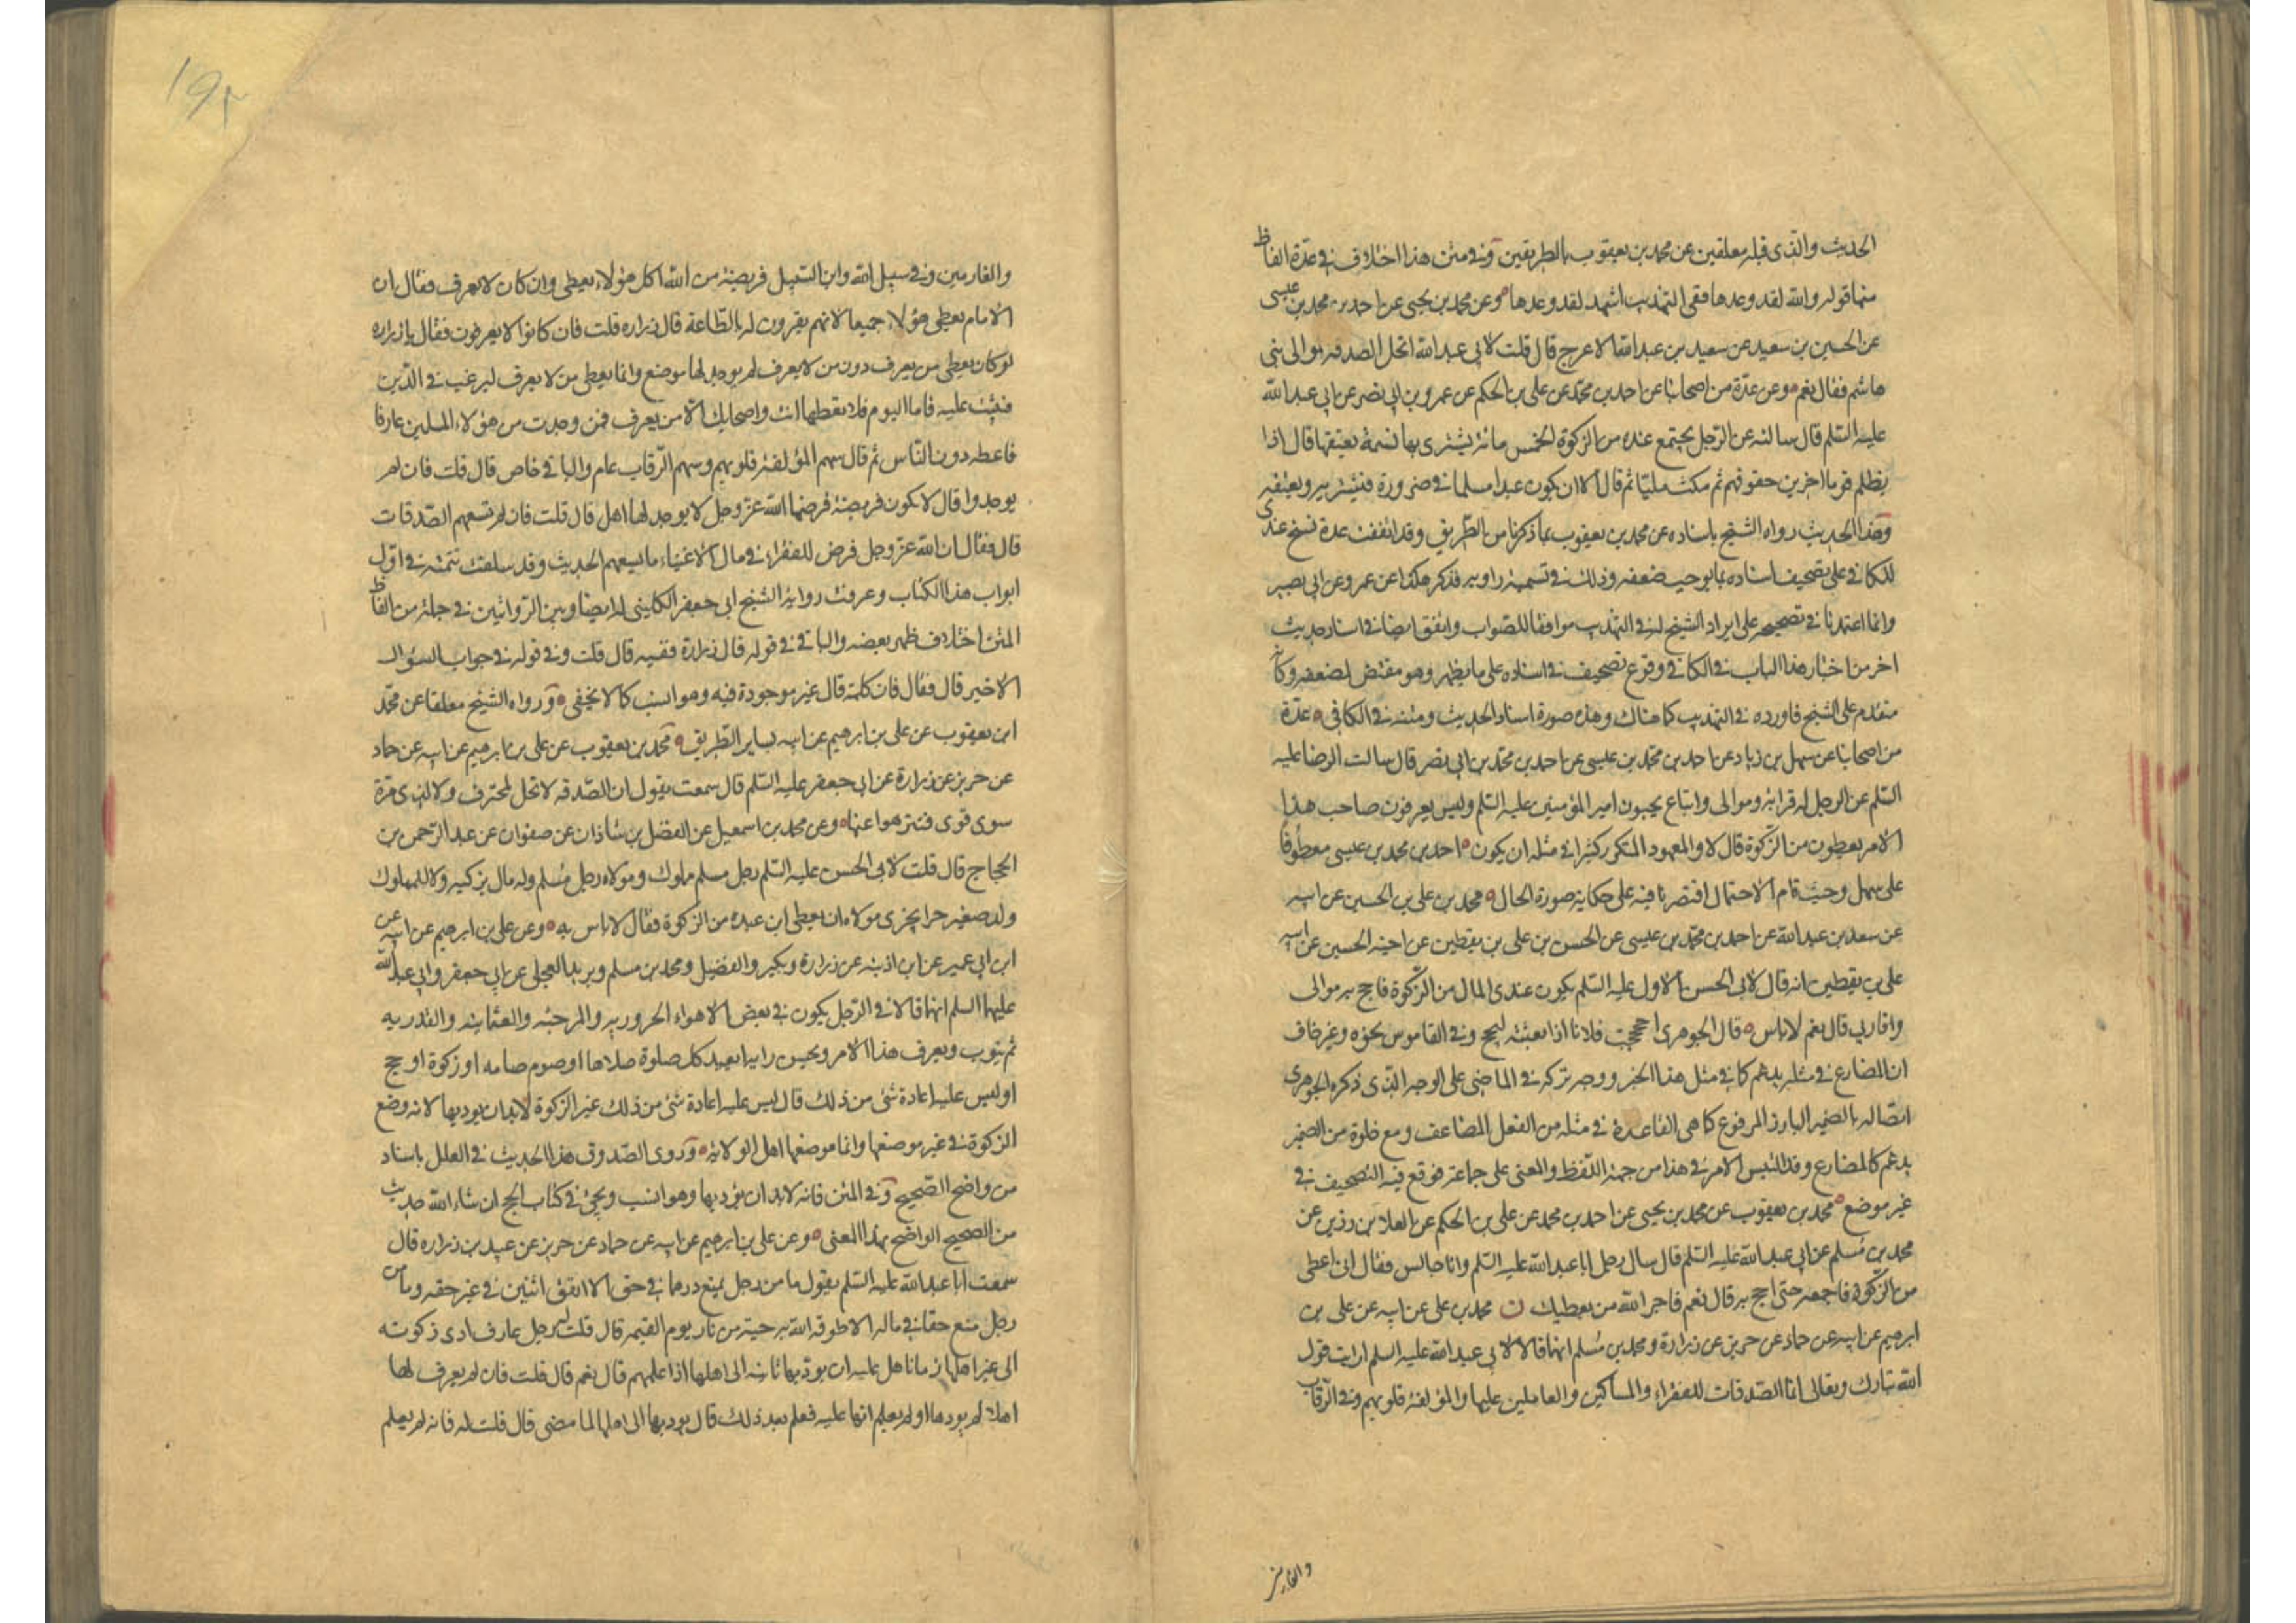 الحديث والذى قبله معلقين عن محمد بن يعقوب بالطريقين وفى متن هذا اختلاف فى عدة الفاظ
منها قوله والله لقد وعدها ففى التهذيب اشهد لقد وعدها وعن محمد بن يحيى عن احمد بن محمد بن عيسى
عن الحسين بن سعيد عن سعيد بن عبد الله الاعرج قال قلت لابى عبد الله اتحل الصدقه لموالى بنى
هاشم فقال نعم وعن عدة من اصحابنا عن احمد بن محمد عن على بن الحكم عن عمرو بن ابى نصر عن ابى عبد الله
عليه السلم قال سالته عن الرجل يجتمع عنده من الزكوة الخمس مائة يشترى بها نسمة يعتقها قال اذا
يظلم قوما اخرين حقوقهم ثم مكث مليا ثم قال الا ان يكون عبدا مسلما فى ضرورة فيشتريه ويعتقه
وهذا الحديث رواه الشيخ باسناده عن محمد بن يعقوب بما ذكرنا من الطريق وقد اتفقت عدة نسخ عندى
للكافى على تصحيف اسناده بما يوجب ضعفه وذلك فى تسمية راويه فذكر هكذا عن عمرو عن ابى بصير
وانما اعتمدنا فى تصحيحه على ايراد الشيخ له فى التهذيب موافقا للصواب واتفق ايضا فى اسناد حديث
اخر من اخبار هذا الباب فى الكافى وقوع تصحيف فى اسناده على ما يظهر وهو مقتض لضعفه وكانه
متقدم على الشيخ فاورده فى التهذيب كما هناك وهذه صورة اسناد الحديث ومتنه فى الكافى عدة
من اصحابنا عن سهل بن زياد عن احمد بن محمد بن عيسى عن احمد بن محمد بن ابى نصر قال سالت الرضا عليه
السلم عن الرجل له قرابة وموالى واتباع يحبون امير المؤمنين عليه السلم وليس يعرفون صاحب هذا
الامر يعطون من الزكوة قال لا والمعهود المتكرر كثيرا فى مثله ان يكون احمد بن محمد بن عيسى معطوفا
على سهل وحيث قام الاحتمال اقتصرنا فيه على حكاية صورة الحال محمد بن على بن الحسين عن ابيه
عن سعد بن عبد الله عن احمد بن محمد بن عيسى عن الحسن بن على بن يقطين عن اخيه الحسين عن ابيه
على بن يقطين انه قال لابى الحسن الاول عليه السلم يكون عندى المال من الزكوة فاحج به موالى
واقاربى قال نعم لا باس قال الجوهرى احججت فلانا اذا بعثته ليحج وفى القاموس نحوه وغير خاف
ان المضارع فى مثله يدغم كما فى مثل هذا الخبر ووجه تركه فى الماضى على الوجه الذى ذكره الجوهرى
اتصاله بالضمير البارز المرفوع كما هى القاعدة فى مثله من الفعل المضاعف ومع خلوه من الضمير
يدغم كالمضارع وقد التبس الامر فى هذا من جهة اللفظ والمعنى على جماعة فوقع فيه التصحيف فى
غير موضع محمد بن يعقوب عن محمد بن يحيى عن احمد بن محمد عن على بن الحكم عن العلا بن رزين عن
محمد بن مسلم عن ابى عبد الله عليه السلم قال سال رجل ابا عبد الله عليه السلم وانا جالس فقال انى اعطى
من الزكوة فاجمعه حتى احج به قال نعم فاجر الله من يعطيك ن محمد بن على عن ابيه عن على بن
ابرهيم عن ابيه عن حماد عن حريز عن زرارة ومحمد بن مسلم انهما قالا لابى عبد الله عليه السلم ارايت قول
الله تبارك وتعالى انما الصدقات للفقراء والمساكين والعاملين عليها والمؤلفة قلوبهم وفى الرقاب
والغارمين
١٩٢
والغارمين وفى سبيل الله وابن السبيل فريضة من الله اكل هؤلاء يعطى وان كان لا يعرف فقال ان
الامام يعطى هؤلاء جميعا لانهم يقرون له بالطاعة قال زراره قلت فان كانوا لا يعرفون فقال يا زراره
لو كان يعطى من يعرف دون من لا يعرف لم يوجد لها موضع وانما يعطى من لا يعرف ليرغب فى الدين
فيثبت عليه فاما اليوم فلا تعطها انت واصحابك الا من يعرف فمن وجدت من هؤلاء المسلمين عارفا
فاعطه دون الناس ثم قال سهم المؤلفة قلوبهم وسهم الرقاب عام والباقى خاص قال قلت فان لم
يوجدوا قال لا يكون فريضة فرضها الله عز وجل لا يوجد لها اهل قال قلت فان لم تسعهم الصدقات
قال فقال ان الله عز وجل فرض للفقراء فى مال الاغنياء ما يسعهم الحديث وقد سلفت تتمته فى اول
ابواب هذا الكتاب وعرفت رواية الشيخ ابى جعفر الكلينى له ايضا وبين الروايتين فى جملة من الفاظ
المتن اختلاف ظهر بعضه والباقى فى قوله قال زرارة ففيه قال قلت وفى قوله فى جواب السؤال
الاخير قال فقال فان كلمة قال غير موجودة فيه وهو انسب كما لا يخفى ورواه الشيخ معلقا عن محمد
ابن يعقوب عن على بن ابرهيم عن ابيه بساير الطريق محمد بن يعقوب عن على بن ابرهيم عن ابيه عن حماد
عن حريز عن زرارة عن ابى جعفر عليه السلم قال سمعته يقول ان الصدقه لا تحل لمحترف ولا لذى مرة
سوى قوى فتنزهوا عنها وعن محمد بن اسمعيل عن الفضل بن شاذان عن صفوان عن عبد الرحمن بن
الحجاج قال قلت لابى الحسن عليه السلم رجل مسلم مملوك ومولاه رجل مسلم وله مال يزكيه وللمملوك
ولد صغير حر ايجزى مولاه ان يعطى ابن عبده من الزكوة فقال لا باس به وعن على بن ابرهيم عن ابيه عن
ابن ابى عمير عن ابن اذينه عن زرارة وبكير والفضيل ومحمد بن مسلم وبريد العجلى عن ابى جعفر وابى عبد الله
عليهما السلم انهما قالا فى الرجل يكون فى بعض الاهواء الحروريه والمرجئه والعثمانيه والقدريه
ثم يتوب ويعرف هذا الامر ويحسن رايه ايعيد كل صلوة صلاها او صوم صامه او زكوة او حج
او ليس عليه اعادة شئ من ذلك قال ليس عليه اعادة شئ من ذلك غير الزكوة لابد ان يوديها لانه وضع
الزكوة فى غير موضعها وانما موضعها اهل الولاية وروى الصدوق هذا الحديث فى العلل باسناد
من واضح الصحيح وفى المتن فانه لابد ان يؤديها وهو انسب ويجئ فى كتاب الحج ان شاء الله حديث
من الصحيح الواضح بهذا المعنى وعن على بن ابرهيم عن ابيه عن حماد عن حريز عن عبيد بن زراره قال
سمعت ابا عبد الله عليه السلم يقول ما من رجل يمنع درهما فى حق الا انفق اثنين فى غير حقه وما من
رجل منع حقا فى ماله الا طوقه الله به حية من نار يوم القيمه قال قلت له رجل عارف ادى زكوته
الى غير اهلها زمانا هل عليه ان يوديها ثانيه الى اهلها اذا علمهم قال نعم قال قلت فان لم يعرف لها
اهلا لم يودها او لم يعلم انها عليه فعلم بعد ذلك قال يوديها الى اهلها لما مضى قال قلت له فانه لم يعلم